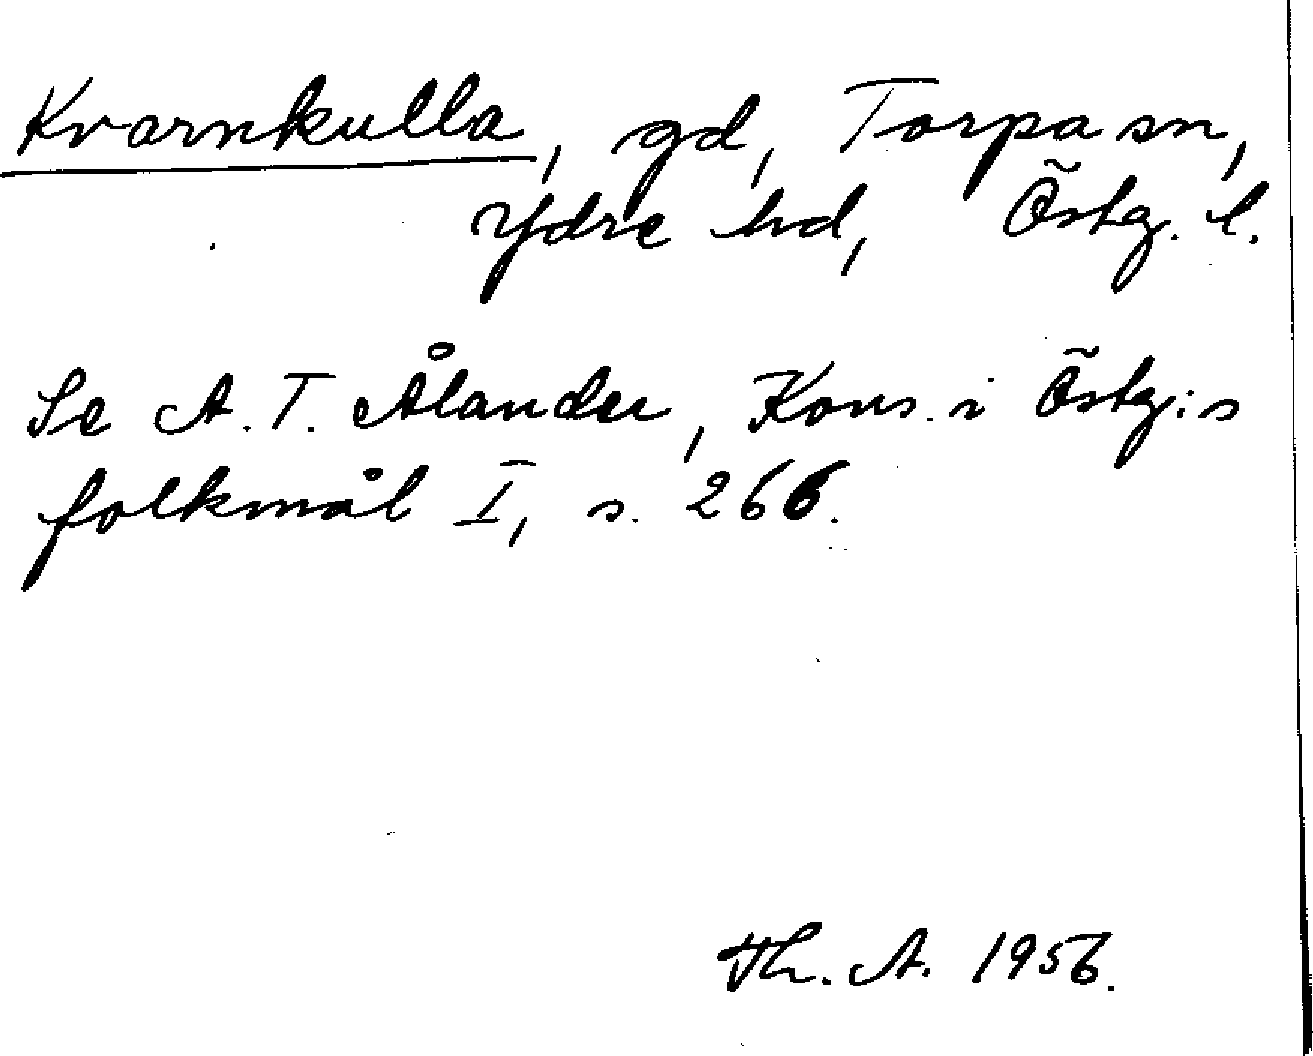 Kvarnkulla, gd, Torpa sn,
Ydre hd, Östg. l.
Se A. T. Ålander, Kons. i Östg:s
folkmål I, s. 266.
Th. A. 1956.